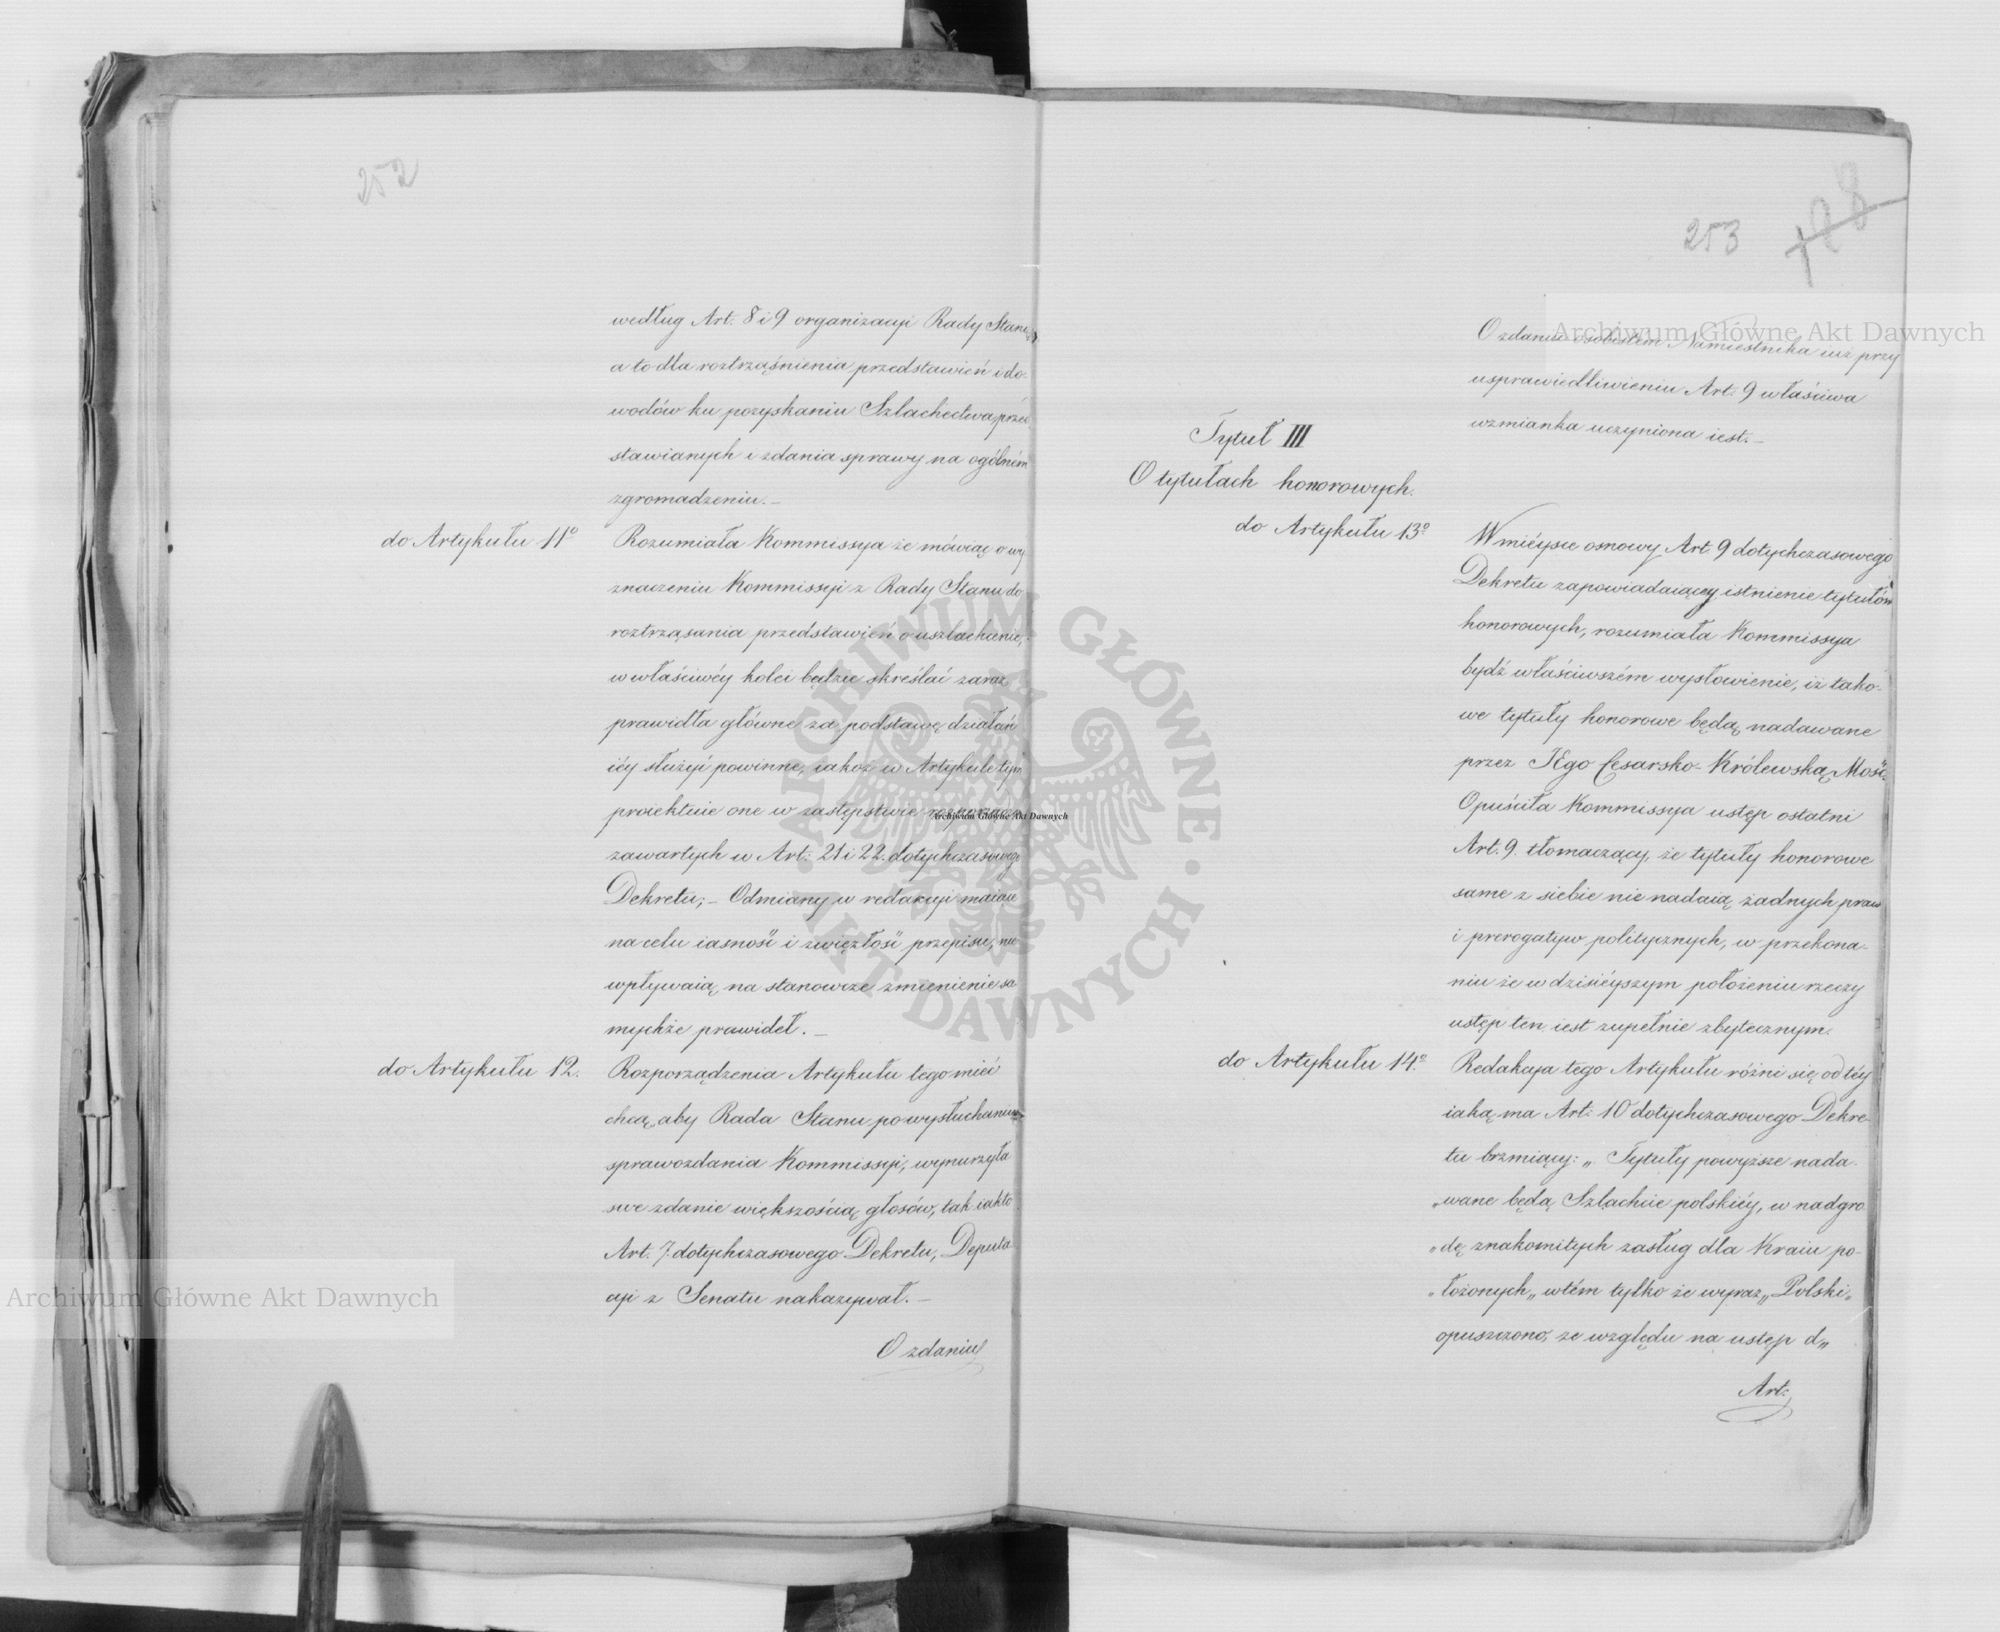 252
według Art: 8 i 9 organizacyi Rady Stanu,
a to dla roztrząśnienia przedstawień i do-
wodów ku pozyskaniu Szlachectwa, przed-
stawianych i zdania sprawy na ogólném
zgromadzeniu. –
do Artykułu 11º
Rozumiała Kommissya że mówiąc o wy
znaczeniu Kommissyi z Rady Stanu do
roztrząsania przedstawień o uszlachcenie,
w właściwéy kolei będzie skreślać zaraz
prawidła główne za podstawę działań
iéy służyć powinne, iakoż w Artykule tym
proiektuie one w zastępstwie
zawartych w Art: 21 i 22. dotychczasowego
Dekretu; – Odmiany w redakcyi maiące
na celu iasność i zwięzłość przepisu, nie
wpływaią na stanowcze zmienienie sa
mychże prawideł. –
do Artykułu 12.
Rozporządzenia Artykułu tego mieć
chcą, aby Rada Stanu po wysłuchaniu
sprawozdania Kommissyi, wynurzyła
swe zdanie większością głosów, tak iak to
Art. 7. dotychczasowego Dekretu, Deputa
cyi z Senatu nakazywał. –
O zdaniu
253
188
O zdaniu osobistem Namiestnika iuż przy
usprawiedliwieniu Art: 9 właściwa
wzmianka uczyniona iest. –
Tytuł III
O tytułach honorowych.
do Artykułu 13º
W mieysce osnowy Art. 9 dotychczasowego
Dekretu zapowiadaiącey istnienie tytułów
honorowych, rozumiała Kommissya
bydź właściwszém wysłowienie, iż tako-
we tytuły honorowe będą nadawane
przez JEgo Cesarsko-Królewską Mość,
Opuściła Kommissya ustęp ostatni
Art. 9. tłomaczący, że tytuły honorowe
same z siebie nie nadaią żadnych praw
i prerogatyw politycznych, w przekona-
niu że w dzisiéyszym położeniu rzeczy
ustęp ten iest zupełnie zbytecznym.
do Artykułu 14º
Redakcya tego Artykułu różni się od téy
iaką ma Art: 10 dotychczasowego Dekre-
tu brzmiący: „ Tytuły powyższe nada-
„wane będą Szlachcie polskiéy, w nadgro
„dę znakomitych zasług dla Kraiu po-
„łożonych „ w tém tylko że wyraz „ Polski „
opuszczono, ze względu na ustęp d„
Art:
Archiwum Główne Akt Dawnych
Archiwum Główne Akt Dawnych
Archiwum Główne Akt Dawnych
· ARCHIWUM GŁÓWNE · AKT DAWNYCH